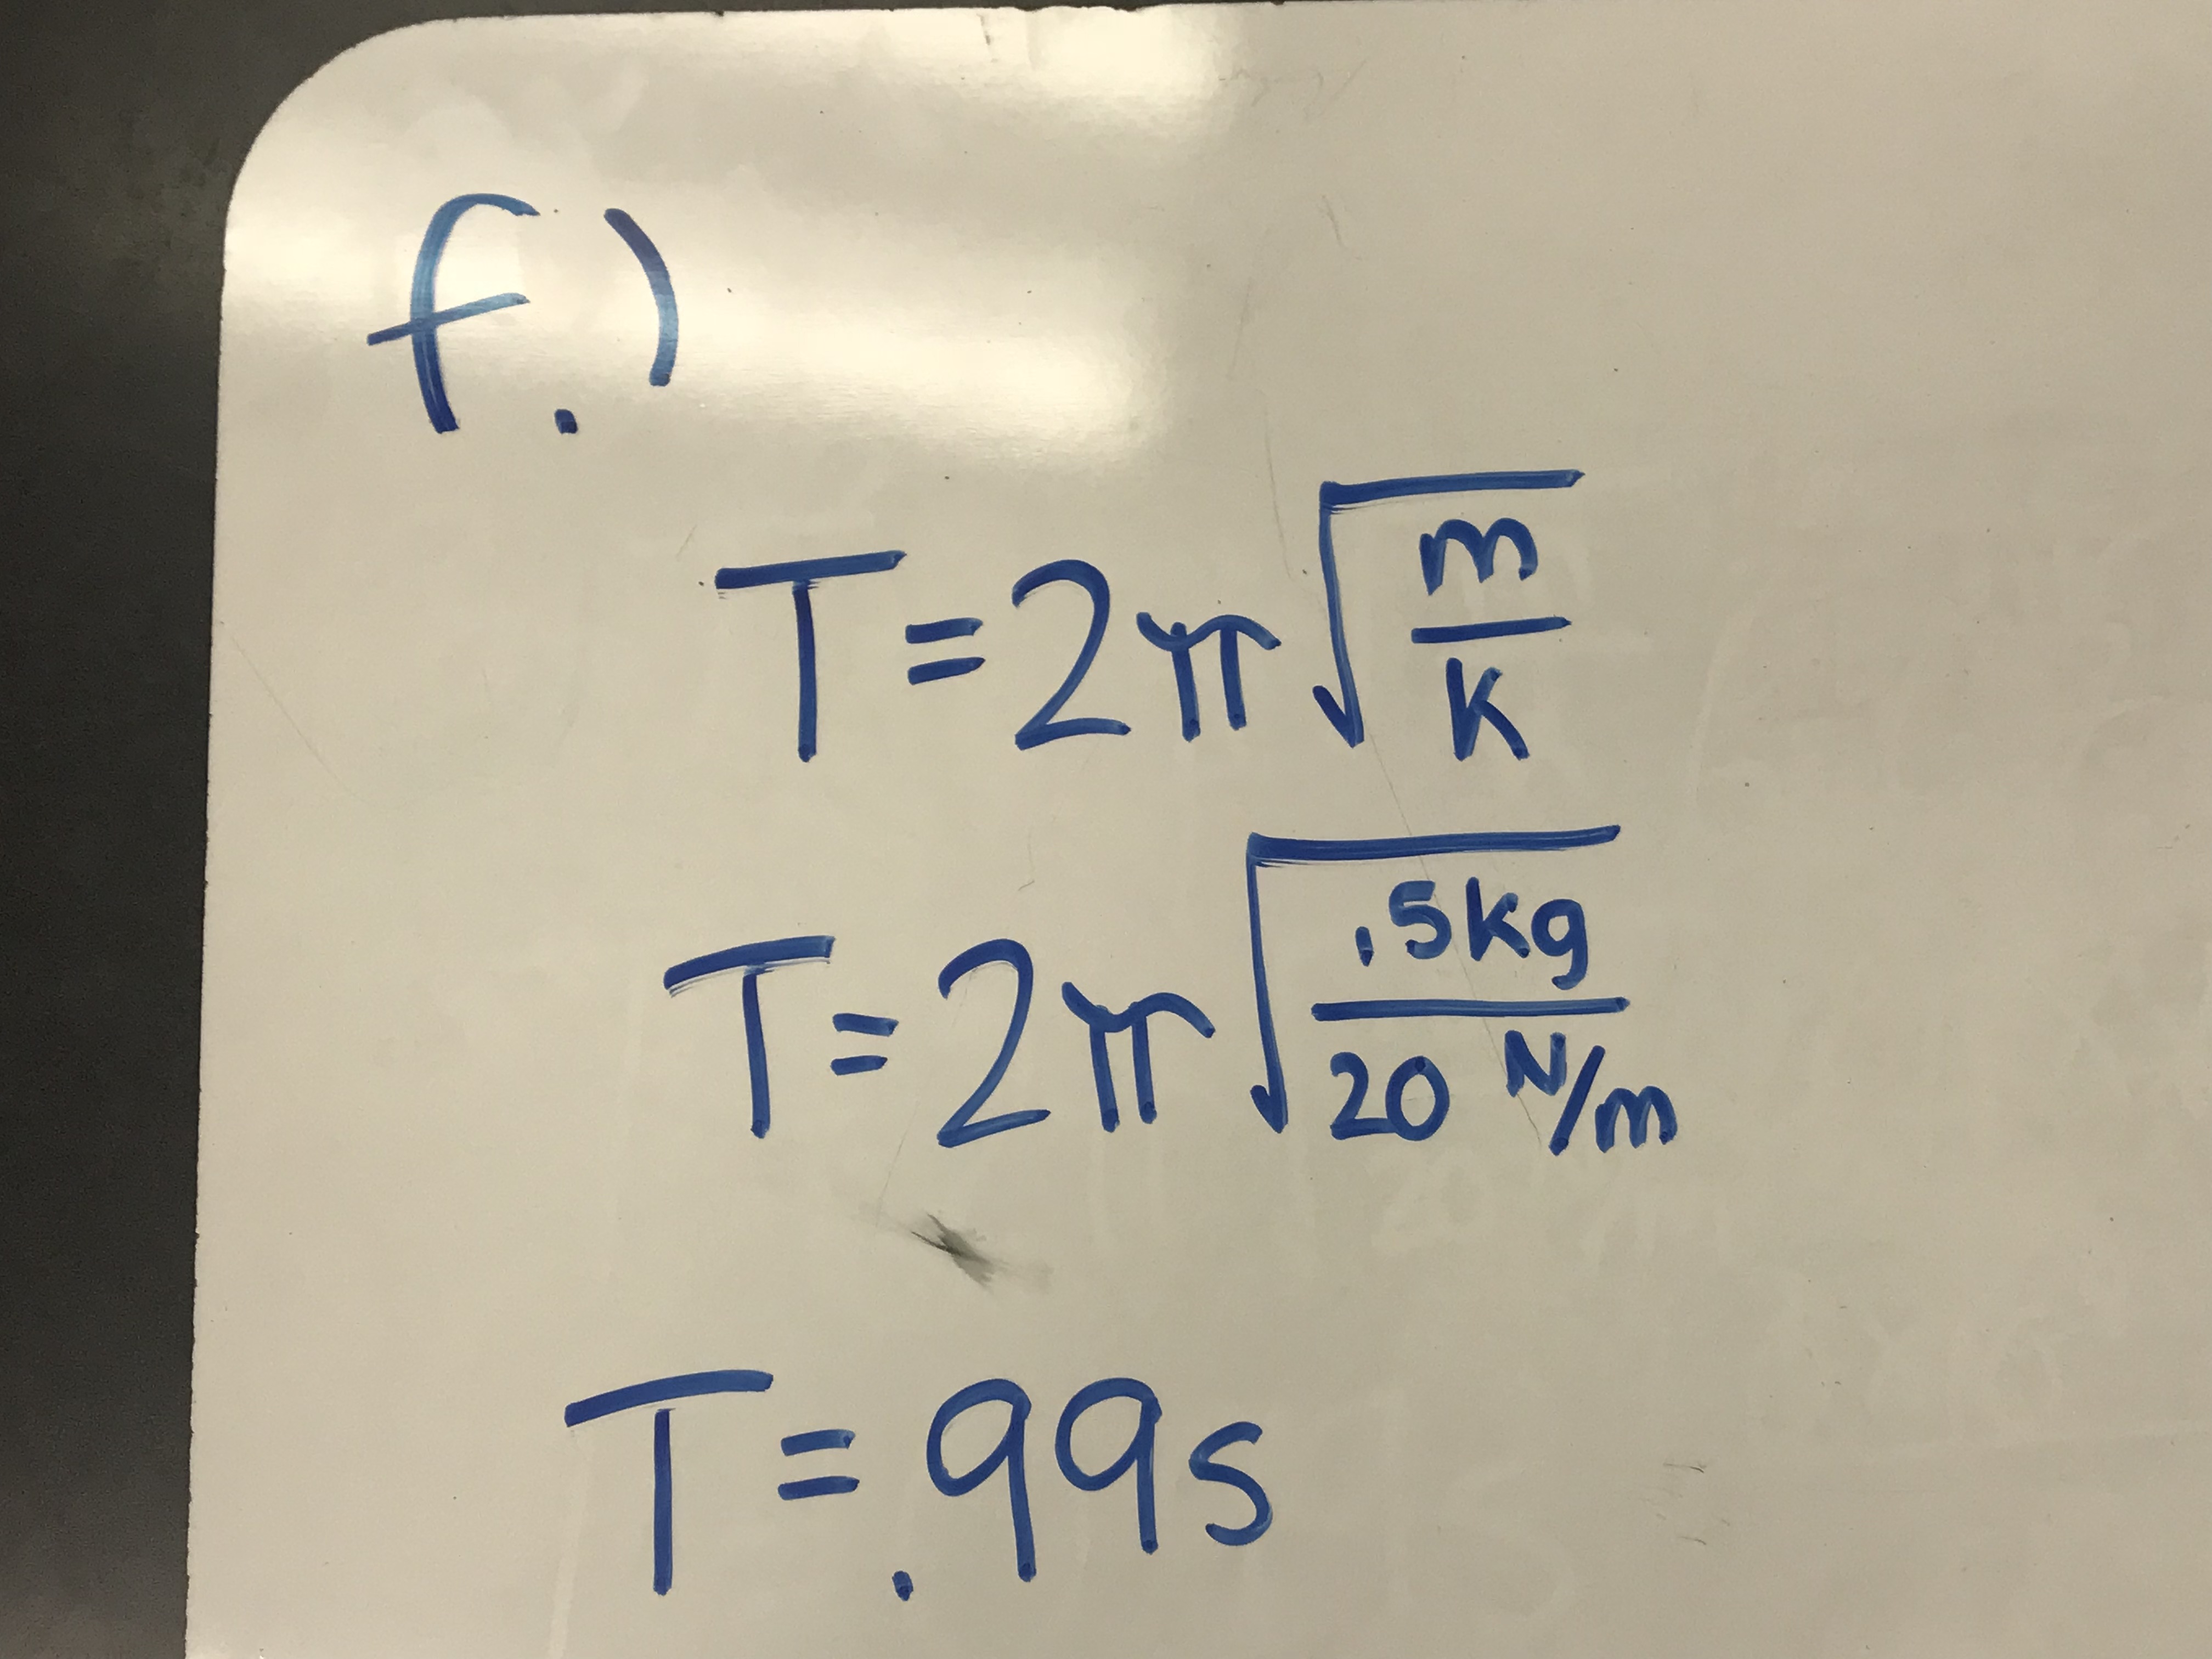 f.)
T=2π√(m/k)
T=2π√(.5kg/20 N/m)
T=.99s